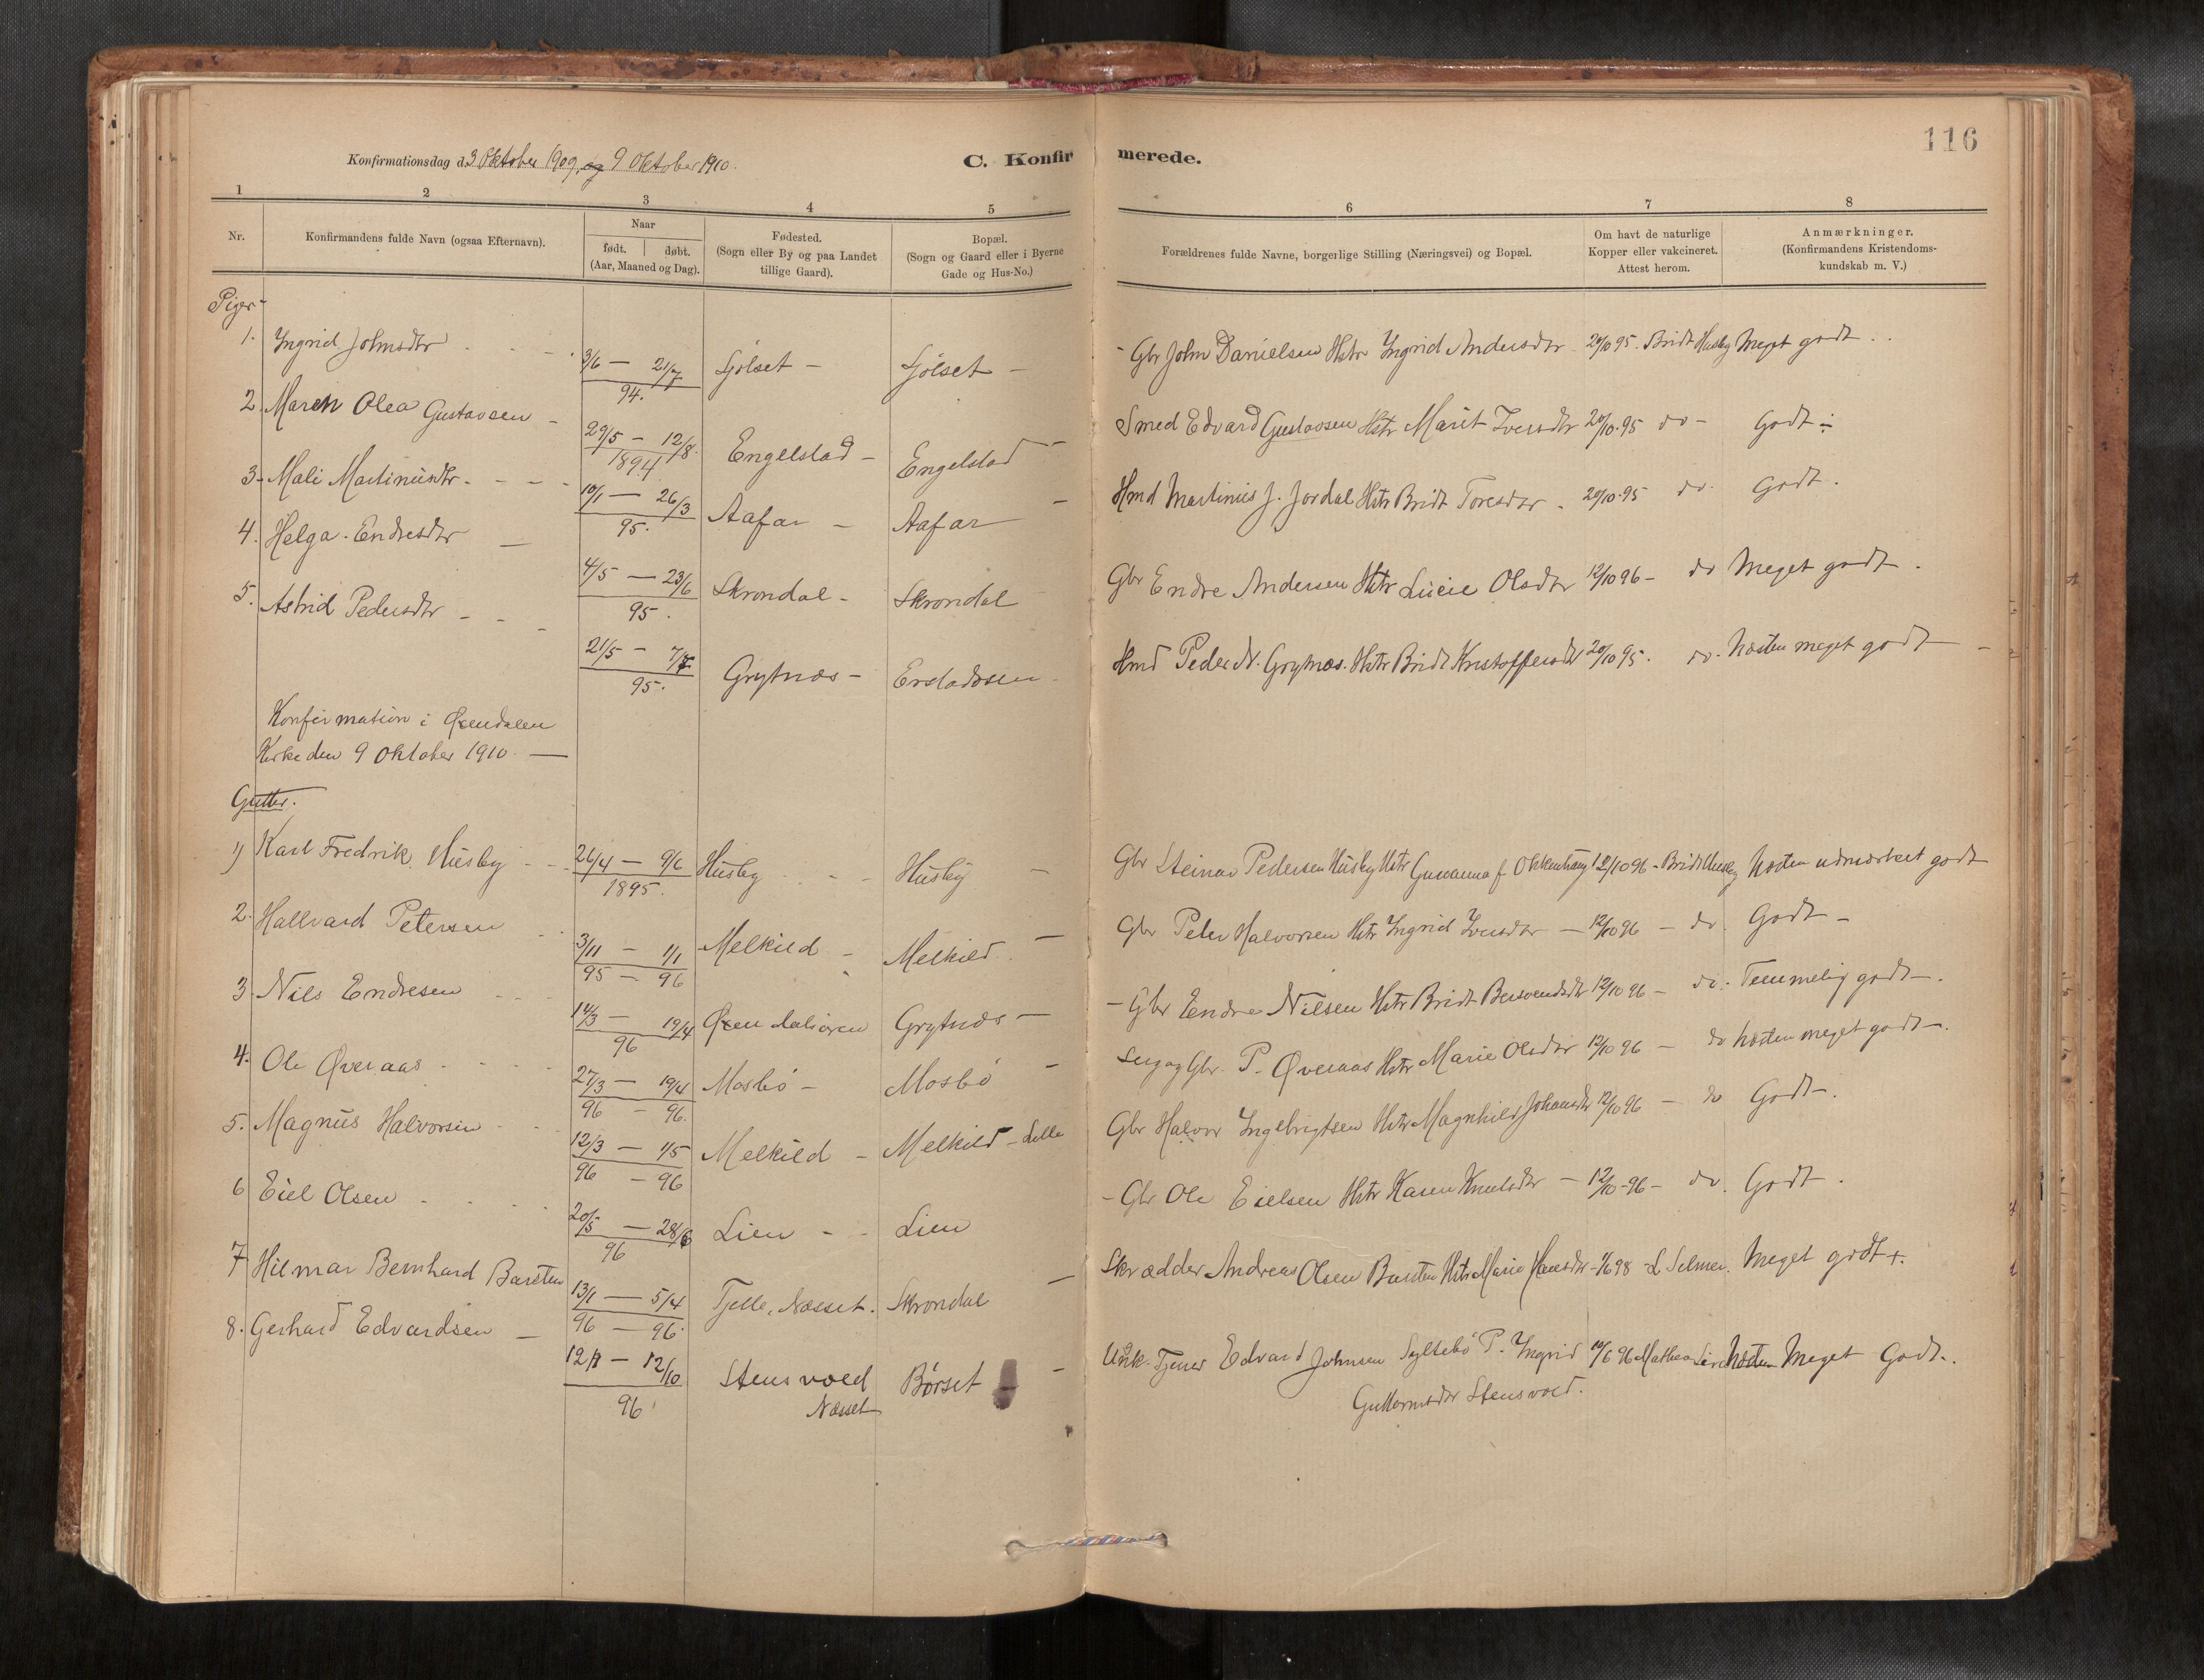 116
Konfirmationsdag d. 3 Oktober 1909, og 9 Oktober 1910.
C. Konfirmerede.
1 2 3 4 5 6 7 8
Nr.
Konfirmandens fulde Navn (ogsaa Efternavn).
Naar
født. døbt.
(Aar, Maaned og Dag).
Fødested.
(Sogn eller By og paa Landet
tillige Gaard).
Bopæl.
(Sogn og Gaard eller i Byerne
Gade og Hus-No.)
Forældrenes fulde Navne, borgerlige Stilling (Næringsvei) og Bopæl.
Om havt de naturlige
Kopper eller vakcineret.
Attest herom.
Anmærkninger.
(Konfirmandens Kristendoms-
kundskab m. V.)
Piger
1. Ingrid Johnsdtr 3/6 — 21/7 94. Sjølset — Sjølset — Gbr John Danielsen Hstr Ingrid Andersdtr 20/10 95. Bridt Husby Meget godt.
2. Maren Olea Gustavsen — 29/5 — 12/8 1894 Engelstad — Engelstad — Smed Edvard Gustavsen Hstr Marit Iversdtr 20/10.95 do — Godt ÷
3. Mali Martinusdtr. — 10/1 — 26/3 95. Aafar — Aafar — Hmd Martinus J. Jordal Hstr Bridt Toresdtr. 20/10.95 do. Godt.
4. Helga Endresdtr — 4/5 — 23/6 95. Skrondal — Skrondal Gbr Endre Andersen Hstr Lucie Olsdtr 12/10 96 — do Meget godt.
5. Astrid Pedersdtr — 21/5 — 7/7 95. Grytnæs — Erstadøsen Hmd Peder N. Grytnæs. Hstr Bridt Kristoffersdtr 20/10 95. do. Næsten meget godt —
Konfirmation i Øxendalen
Kirke den 9 Oktober 1910. —
Gutter.
1) Karl Fredrik Husby 26/4 — 9/6 1895. Husby Husby — Gbr Steinar Pedersen Husby Hstr Gunanna f. Okkenhaug 12/10 96 — Bridt Husby Næsten udmærket godt
2. Hallvard Petersen 3/11 — 1/1 95 — 96 Melkild — Melkild. — Gbr Peter Halvorsen Hstr Ingrid Iversdtr — 12/10 96 — do. Godt —
3. Nils Endresen 14/3 — 19/4 96 Øxendalsøren Grytnæs — Gbr Endre Nilsen Hstr Bridt Bersvendsdtr 12/10 96 — do. Temmelig godt —.
4. Ole Øveraas 27/3 — 19/4 96 — 96. Mosbø — Mosbø — Gbr. P. Øveraas Hstr Marie Olsdtr 12/10 96 — do Næsten meget godt —.
5. Magnus Halvorsen 12/3 — 1/5 96 — 96 Melkild — Melkild — Lille Gbr Halvor Ingebrigtsen Hstr Magnhild Johansdtr 12/10 96 — do Godt —.
6 Eiel Olsen 20/5 — 28/6 96 Lien — Lien — Gbr Ole Eielsen Hstr Karen Knutsdtr — 12/10 — 96 — do. Godt.
7 Hilmar Bernhard Barsten 13/1 — 5/4 96 — 96. Tjelle, Næsset. Skrondal — Skrædder Andreas Olsen Barsten Hstr Marie Hansdtr — 1/6 98 L Selmer. Meget godt +.
8. Gerhard Edvardsen — 12/7 — 12/10 96 Stensvold Næsset Børset — Unk. Tjener Edvard Johnsen Syltebø P. Ingrid 10/6 96 Mathea Næsten Meget Godt.
Guttormsdtr Stensvold.